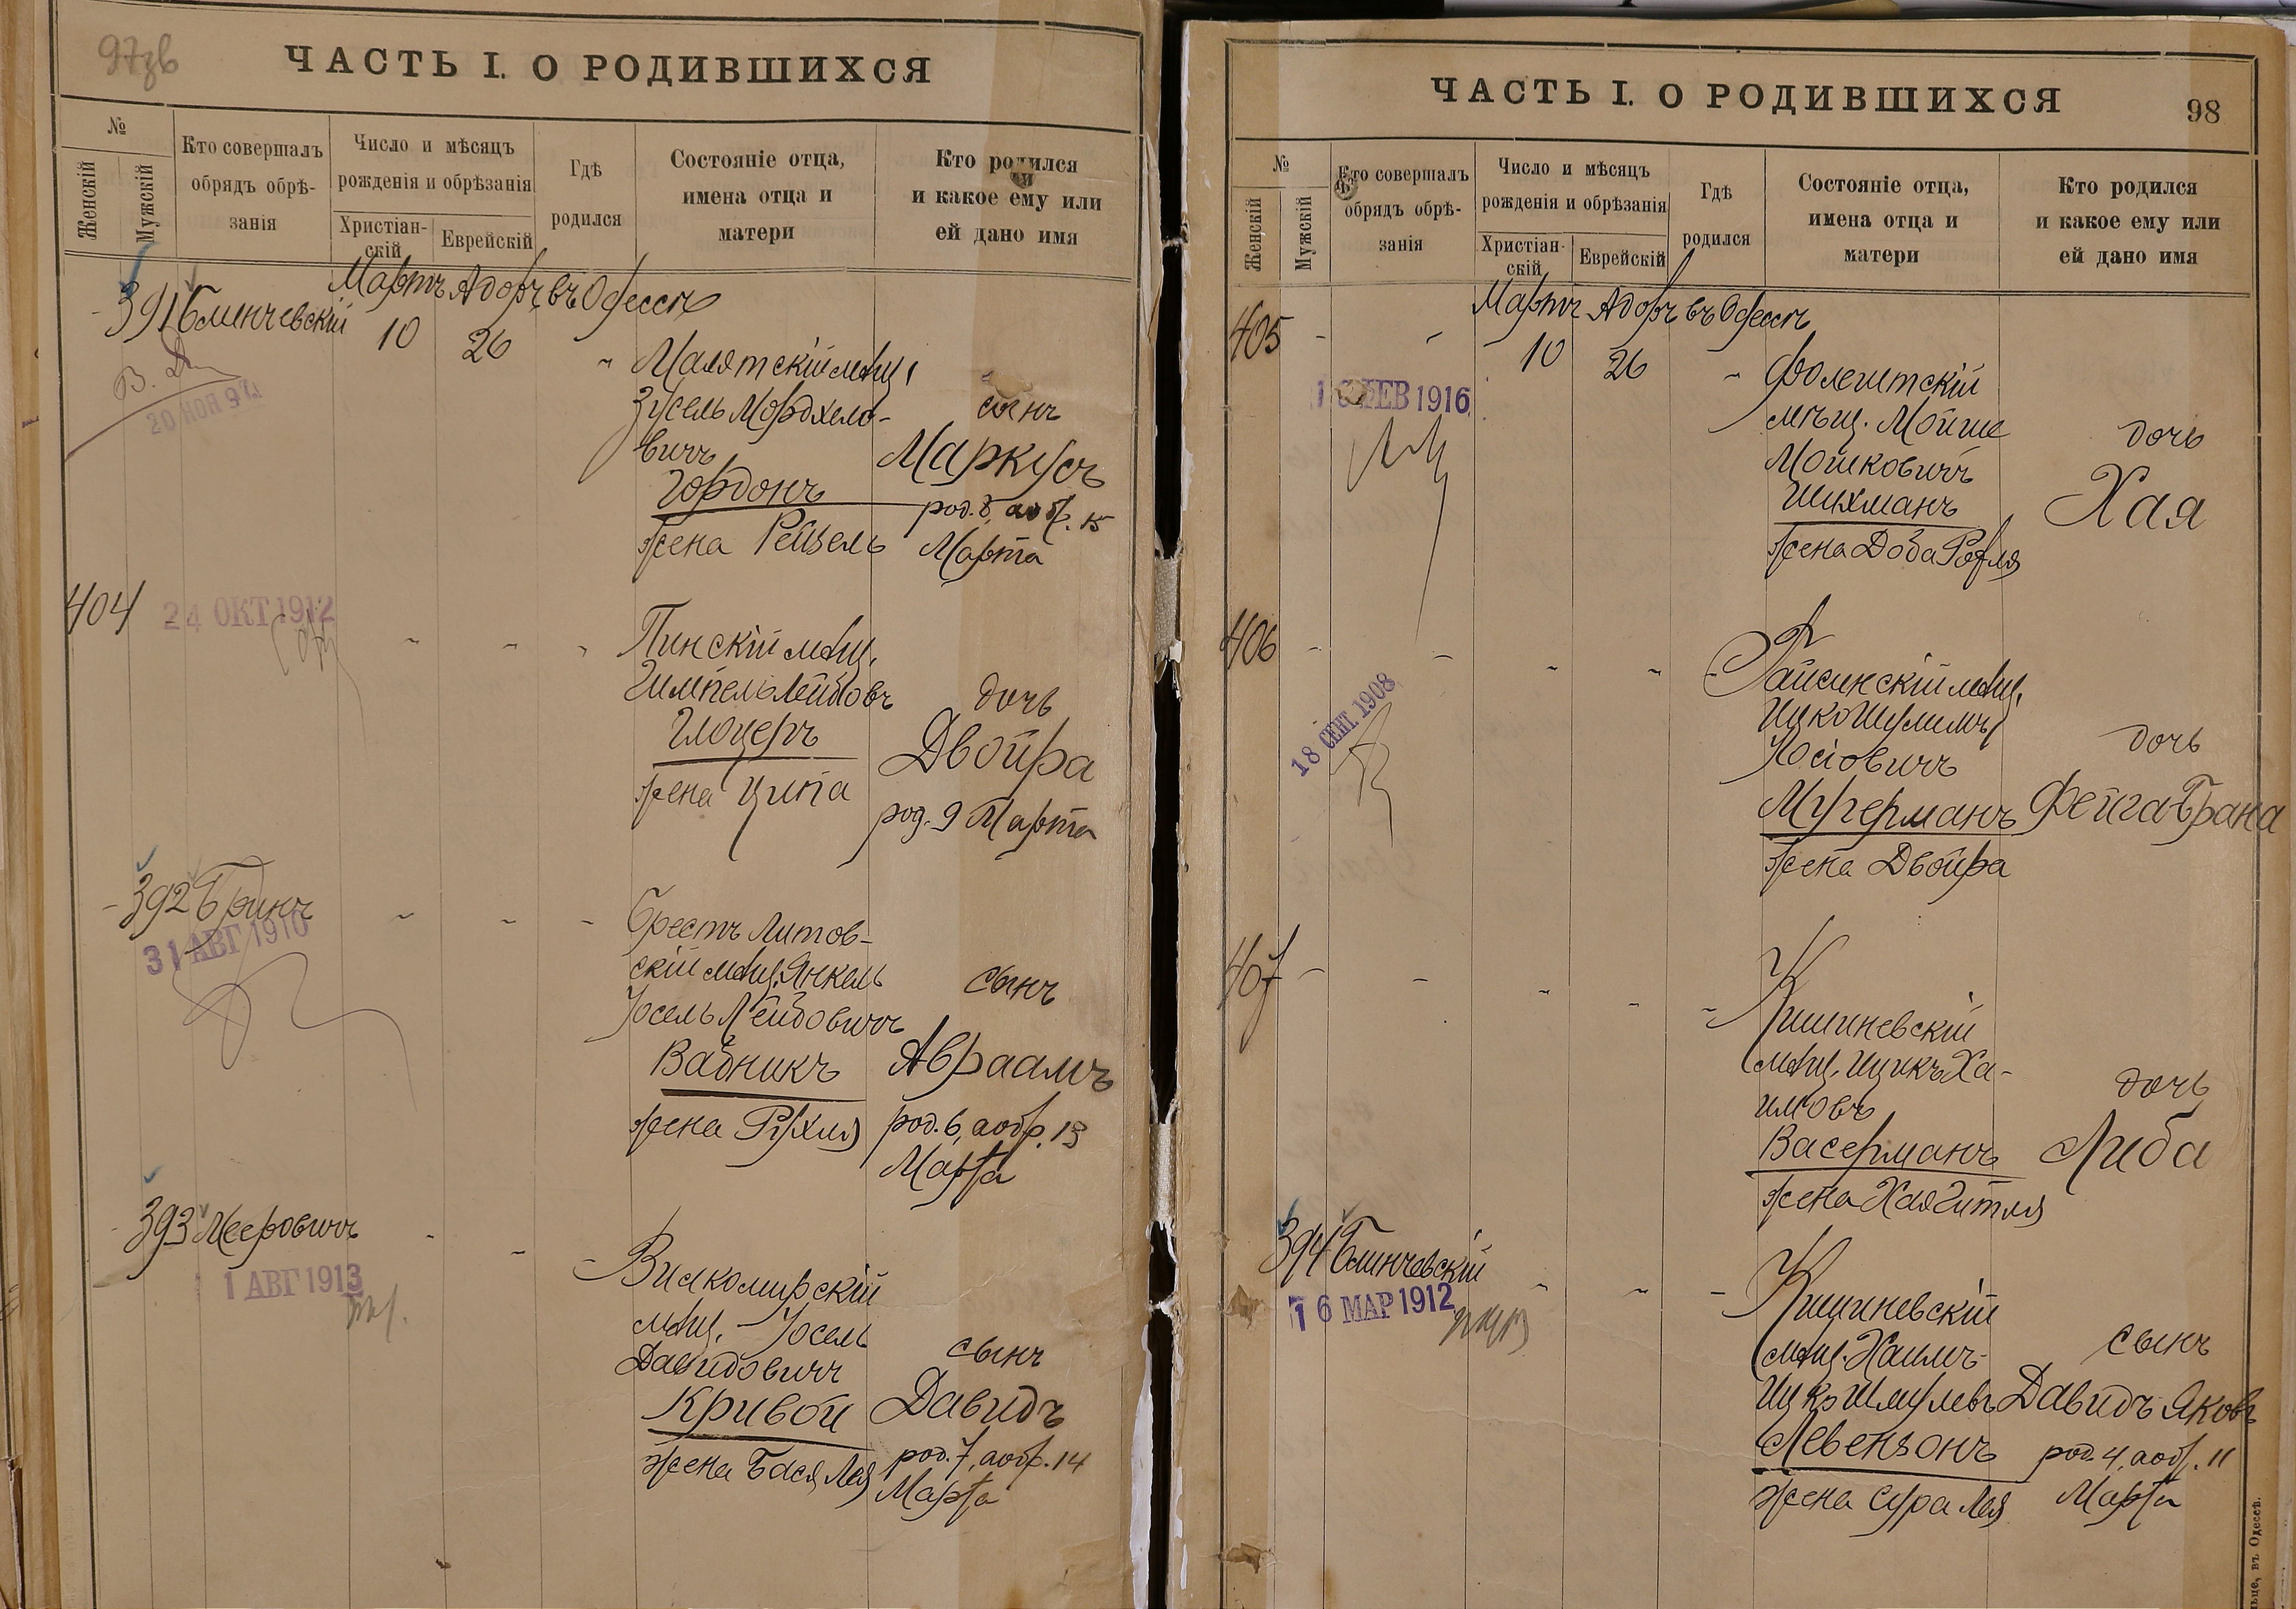 97зв
ЧАСТЬ I. О РОДИВШИХСЯ
№
Женскій
Мужскій
Кто совершалъ
обрядъ обрѣ-
занія
Число и мѣсяцъ
рожденія и обрѣзанія
Христіан-
скій
Еврейскій
Гдѣ
родился
Состояніе отца,
имена отца и
матери
Кто родился
и какое ему или
ей дано имя
Мартъ Адаръ въ Одессѣ
391 Блинчевскій
10 26 "
20 НОЯ 97
Малятскій мѣщ.
Зусель Мордхело-
вичъ
Гордонъ
жена Рейзель
сынъ
Маркусъ
род. 8, а обр. 15
Марта
404 - 24 ОКТ 1912 " " "
Пинскій мѣщ.
Гимпель Лейбовъ
Глоцеръ
жена Ципа
дочь
Двойра
род. 9 Марта
392 Гринъ " " "
31 АВГ 1910
Брестъ Литов-
скій мѣщ. Янкель
Іосель Лейбовичъ
Вабникъ
жена Рухля
сынъ
Авраамъ
род. 6, а обр. 13
Марта
393 Мееровичъ " " "
1 АВГ 1913
Вилкомирскій
мѣщ. Іосель
Давидовичъ
Кривой
жена Бася Лея
сынъ
Давидъ
род. 7, а обр. 14
Марта
ЧАСТЬ I. О РОДИВШИХСЯ
98
№
Женскій
Мужскій
Кто совершалъ
обрядъ обрѣ-
занія
Число и мѣсяцъ
рожденія и обрѣзанія
Христіан-
скій
Еврейскій
Гдѣ
родился
Состояніе отца,
имена отца и
матери
Кто родился
и какое ему или
ей дано имя
Мартъ Адаръ въ Одессѣ
405 - " 10 26 "
ФЕВ 1916
Фолештскій
мѣщ. Мойше
Мошковичъ
Шихманъ
жена Доба Рохля
дочь
Хая
406 - " " " "
18 СЕНТ. 1908
Гайсинскій мѣщ.
Ицко Шулимъ
Іосіовичъ
Мучерманъ
жена Двойра
дочь
Фейга Брана
407 - " " " "
Кишиневскій
мѣщ. Ицикъ Ха-
имовъ
Васерманъ
жена Хая Гитля
дочь
Либа
394 Блинчевскій " " "
16 МАР 1912
Кишиневскій
мѣщ. Хаимъ-
Ицко Шмулевъ
Левензонъ
жена Сура Лея
сынъ
Давидъ Яковъ
род. 4, а обр. 11
Марта
въ Одессѣ.